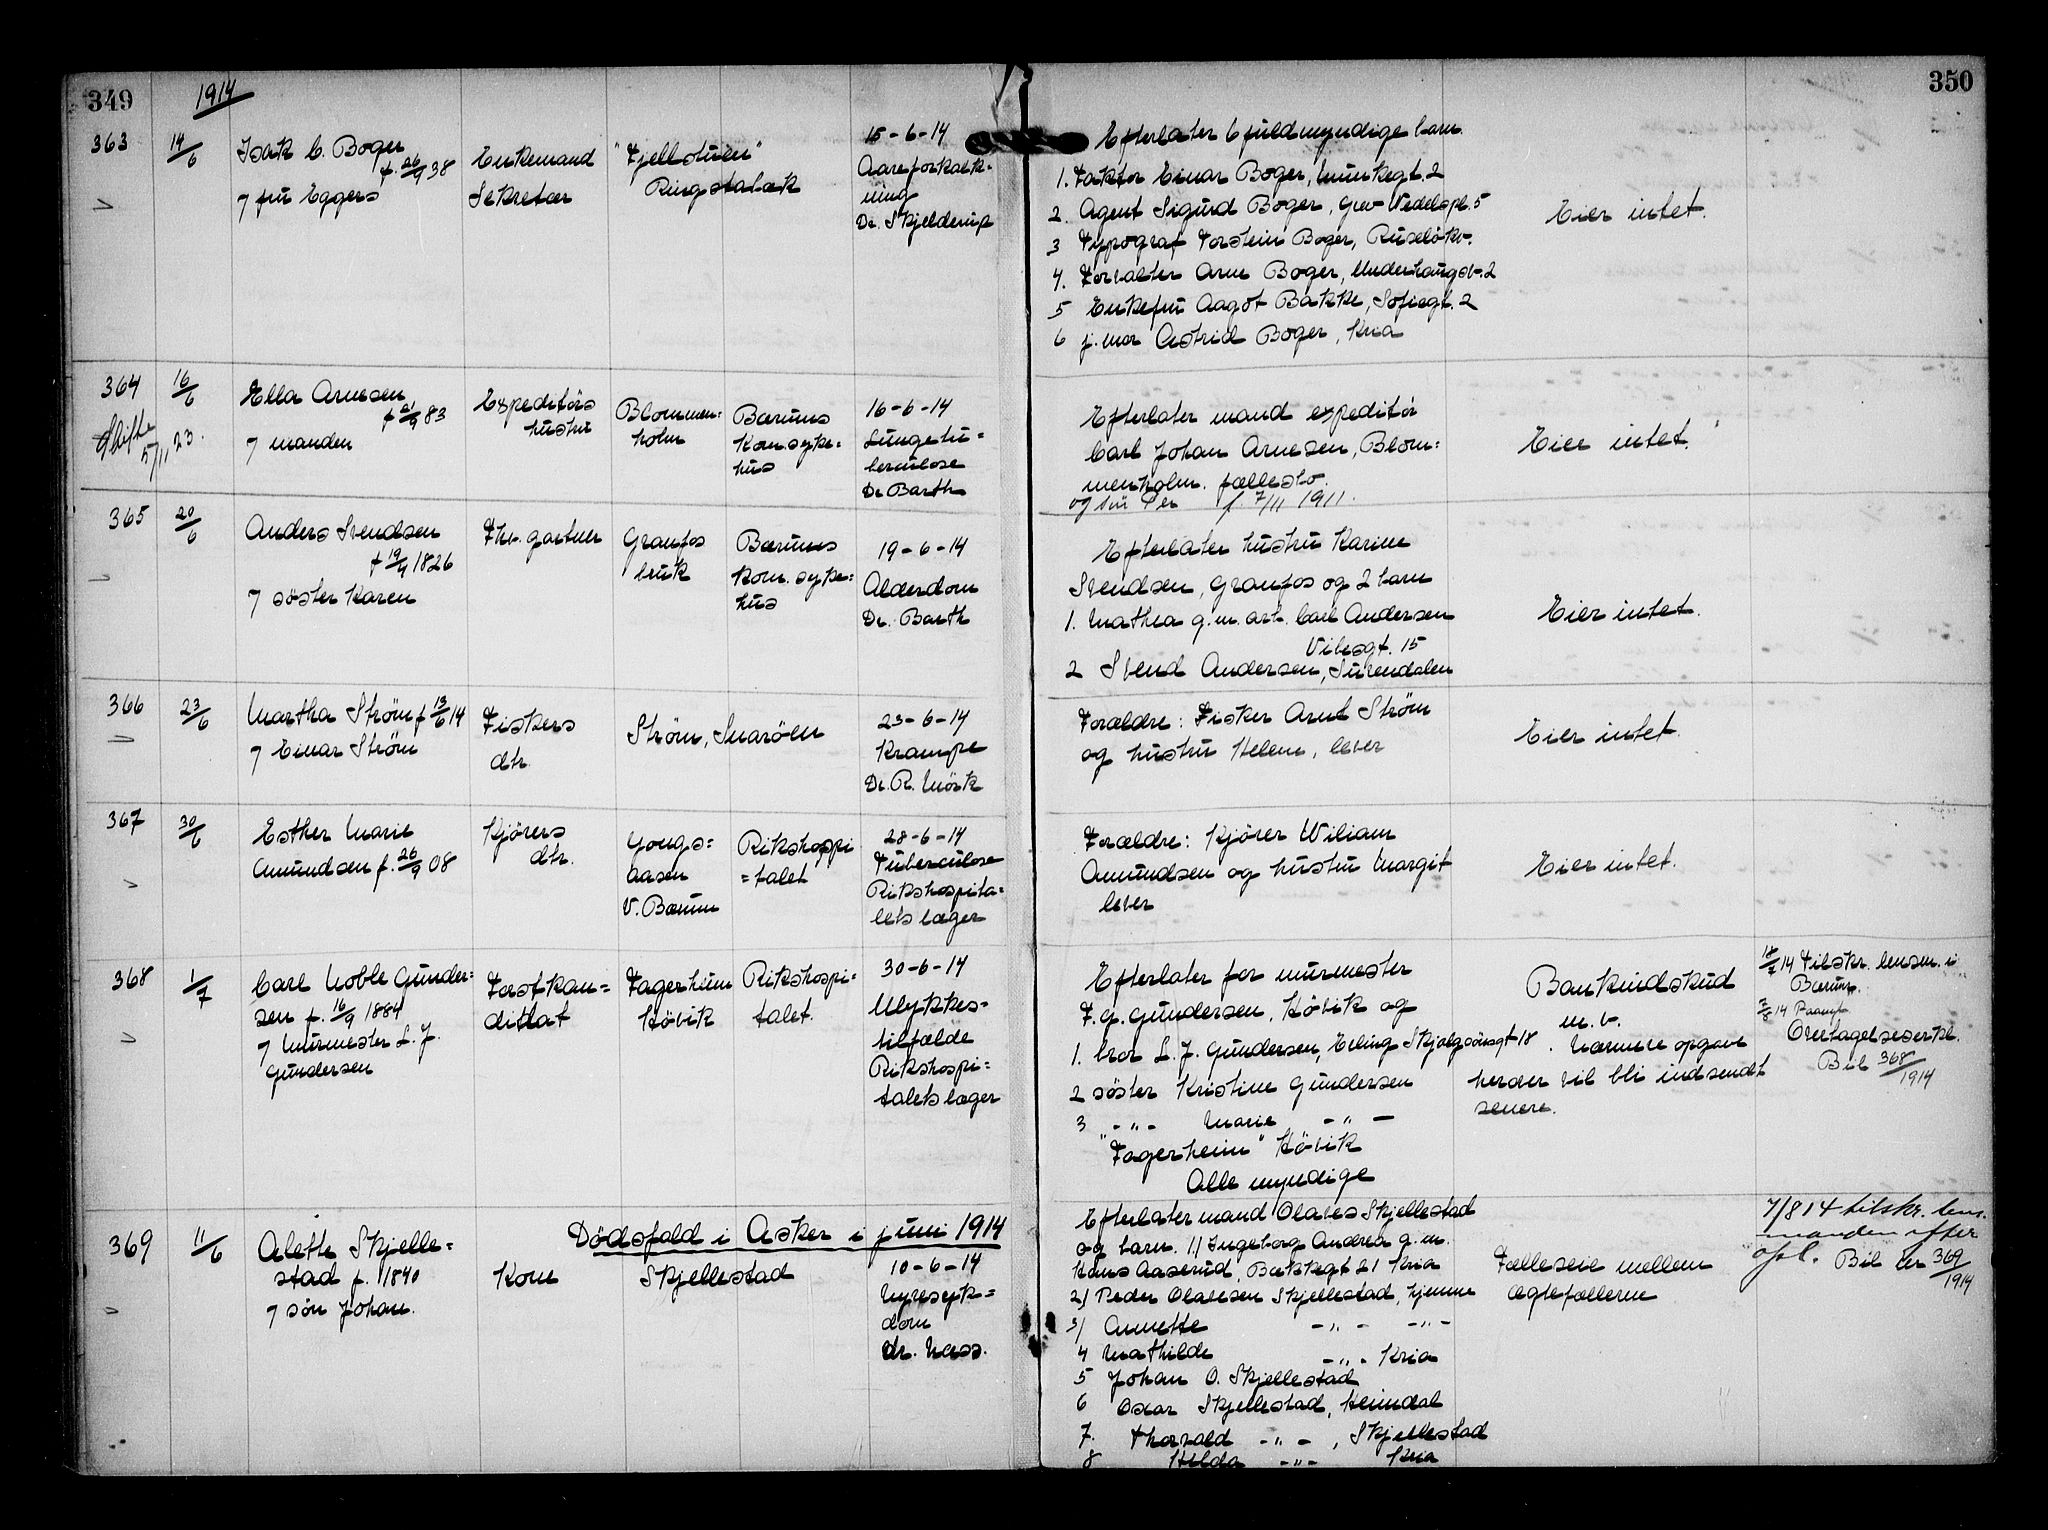 349
1914
350
363
14/6
Isak C. Boger
f. 26/9 38
7 fru Eggers
Enkemand
Sekretær
"Fjellstuen"
Ringstabæk
15-6-14
Aareforkalk=
ning
Dr. Skjelderup
Efterlater 6 fuldmyndige barn
1. Faktor Einar Boger, Munkegt. 2
2. Agent Sigurd Boger, Grev Wedelspl. 5
3 Typograf Torstein Boger, Ruseløkv.
4. Forvalter Arne Boger, Underhaugsv. 2
5 Enkefru Aagot Bakke, Sofiegt. 2
6 j.mor Astrid Boger, Kria
Eier intet.
364
16/6
Skifte
5/11 23.
Ella Arnesen
f 21/9 83
7 manden
Expeditørs
hustru
Blommen=
holm
Bærums
Kom.syke=
hus
16-6-14
Lungetu=
berculose
Dr Barth
Efterlater mand expeditør
Carl Johan Arnesen, Blom=
menholm. fællesbo.
og søn Per f. 7/11 1911.
Eier intet.
365
20/6
Anders Svendsen
f 19/4 1826
7 søster Karen
Fhv. gartner
Granfos
bruk
Bærums
kom. syke=
hus
19-6-14
Alderdom
Dr. Barth
Efterlater hustru Karine
Svendsen, Granfos og 2 barn
1. Mathea g.m. arb. Carl Andersen
Vibesgt. 15
2 Svend Andersen, Surendalen
Eier intet.
366
23/6
Martha Strøm f 13/6 14
7 Einar Strøm
Fiskers
dtr.
Strøm, Snarøen
23-6-14
Krampe
Dr. R. Mørk
Forældre: Fisker Arnt Strøm
og hustru Helene, lever
Eier intet.
367
30/6
Esther Marie
Amundsen f. 26/9 08
Kjørers
dtr.
Yongs=
aasen
V. Bærum
Rikshospi
=talet
28-6-14
Tuberculose
Rikshospita=
lets læger
Forældre: Kjører Wiliam
Amundsen og hustru Margit
lever
Eier intet.
368
1/7
Carl Noble Gunder=
sen f. 16/9 1884
7 Murmester L. J.
Gundersen
Forstkan=
didat
Fagerheim
Høvik
Rikshospi=
talet.
30-6-14
Ulykkes=
tilfælde
Rikshospi=
talets læger
Efterlater far murmester
F. G. Gundersen, Høvik og
1. bror L. J. Gundersen, Erling Skjalgsønsgt 18
2 søster Kristine Gundersen
3 -"- Marie -"-
"Fagerheim" Høvik
Alle myndige
Bankindskud
m.v.
Nærmere opgave
herover vil bli indsendt
senere.
14 Tilskr. lensm. i
Bærum.
14
Overtagelseserkl.
Bil 368/1914
369
11/6
Alette Skjelle=
stad f. 1840
7 søn Johan.
Dødsfald i Asker i juni 1914
Kone
Skjellestad
10-6-14
Nyresyk=
dom
Dr. Næss.
Efterlater mand Olaves Skjellestad
og barn. 1/ Ingeborg Andrea g.m.
Hans Aaserud, Bækkegt 21 Kria
2/ Peder Olavesen Skjellestad, hjemme
3/ Annette -"- -"-
4 Mathilde -"- Kria
5 Johan O. Skjellestad
6 Oscar Skjellestad, Heimdal
7. Thorvald -"-, Skjellestad
8 Hilda -"- Kria
Fælleseie mellem
ægtefællerne
7/8 14 tilskr. lens.
manden efter
opl. Bil nr 369/1914